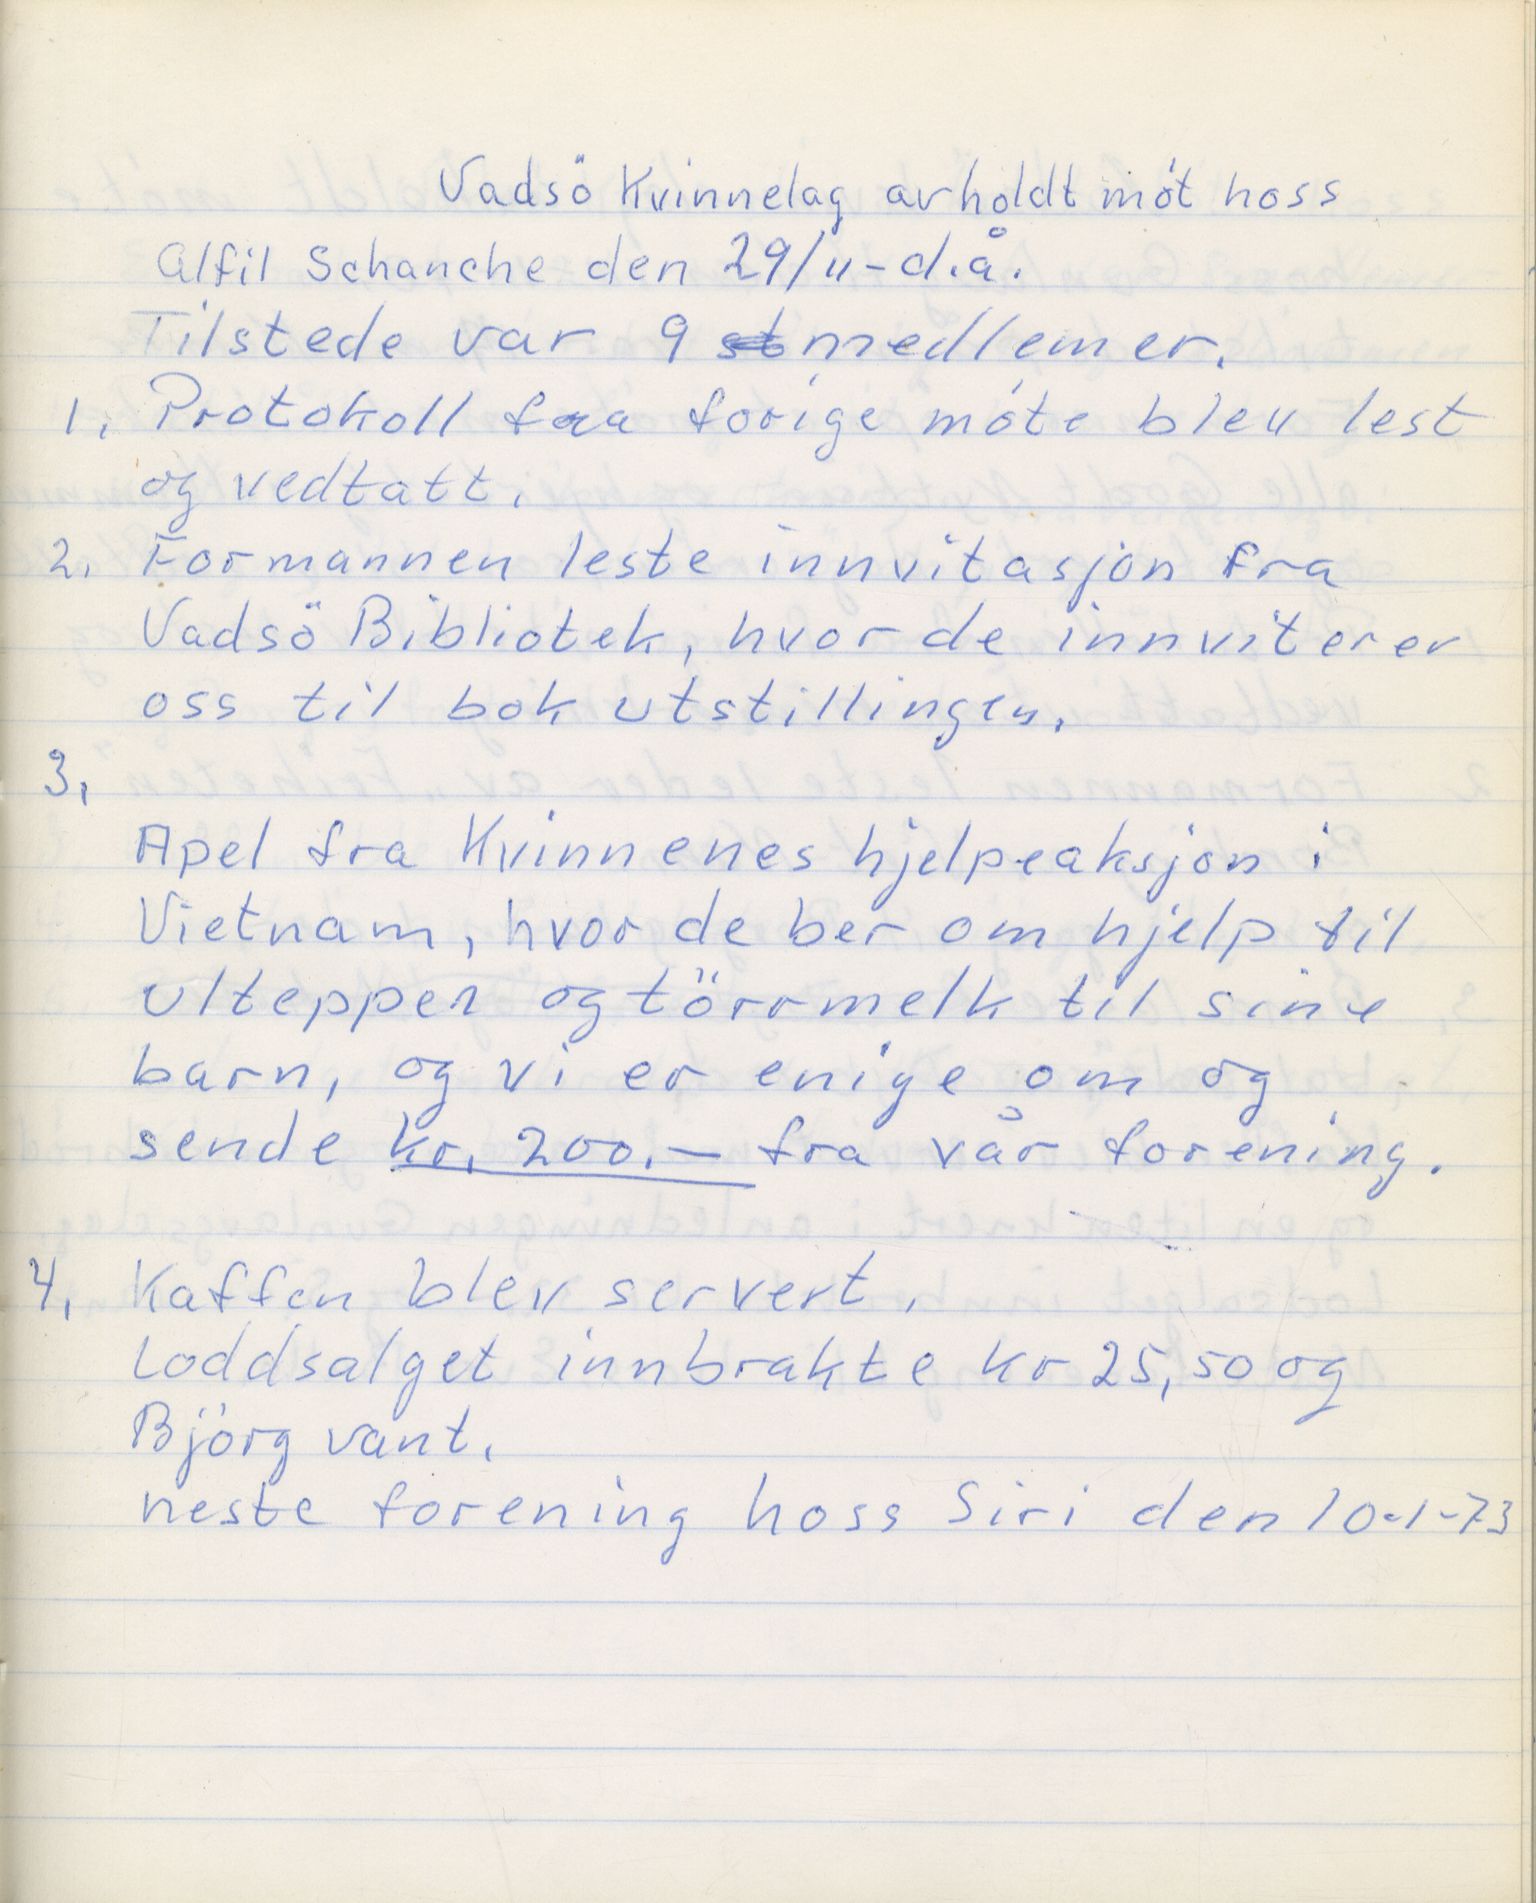 Vadsö Kvinnelag avholdt möt hoss
Alfil Schanche den 29/11-d.å.
Tilstede var 9 medlemer.
1. Protokoll fra forige möte blev lest
og vedtatt.
2. Formannen leste innvitasjon fra
Vadsö Bibliotek, hvor de innviterer
oss til bok utstillingen.
3.
Apel fra Kvinnenes hjelpeaksjon i
Vietnam, hvor de ber om hjelp til
ultepper og törrmelk til sine
barn, og vi er enige om og
sende kr. 200.- fra vår forening.
4. Kaffen blev servert.
Loddsalget innbrakte kr 25,50 og
Björg vant.
neste forening hoss Siri den 10-1-73